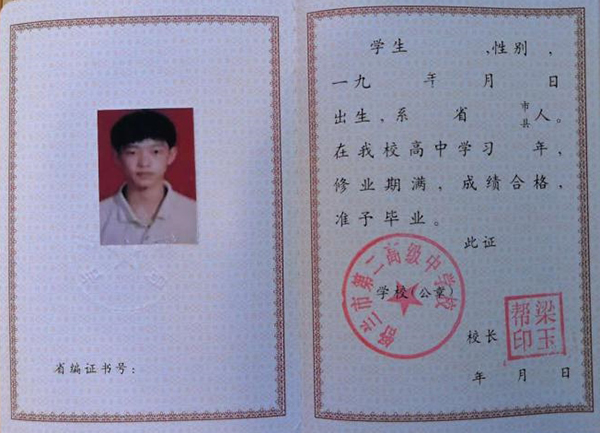 学生 、性别 ，
一九 年 月 日
出生，系 省 市县 人。
在我校高中学习 年，
修业期满，成绩合格，
准予毕业。
此证
舒兰市第二高级中学校
学校（公章）
梁玉
帮印
校长
年 月 日
省编证书号：